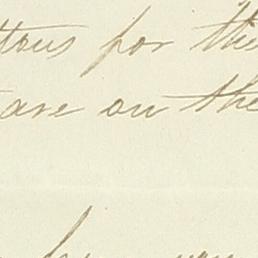 ttons for the
are on the